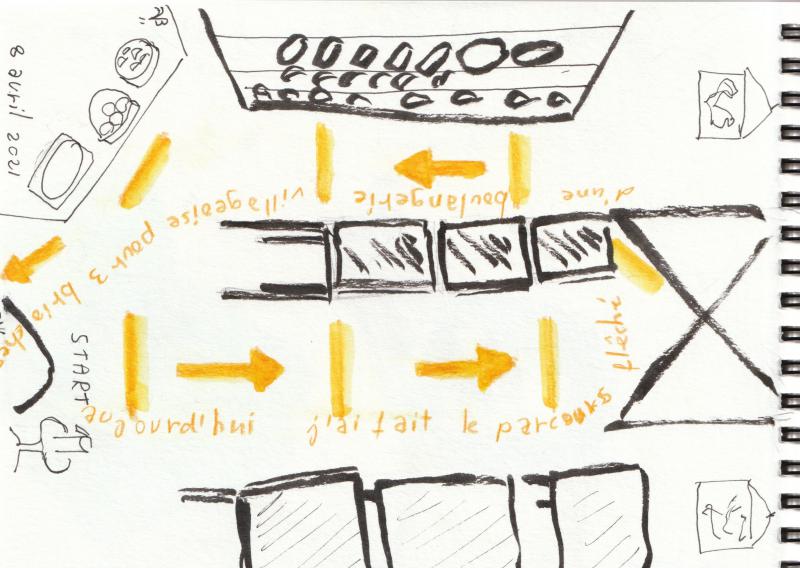 8 avril 2021
START
aujourd'hui j'ai fait le parcours
fléché
d'une boulangerie villageoise pour 3 brioches